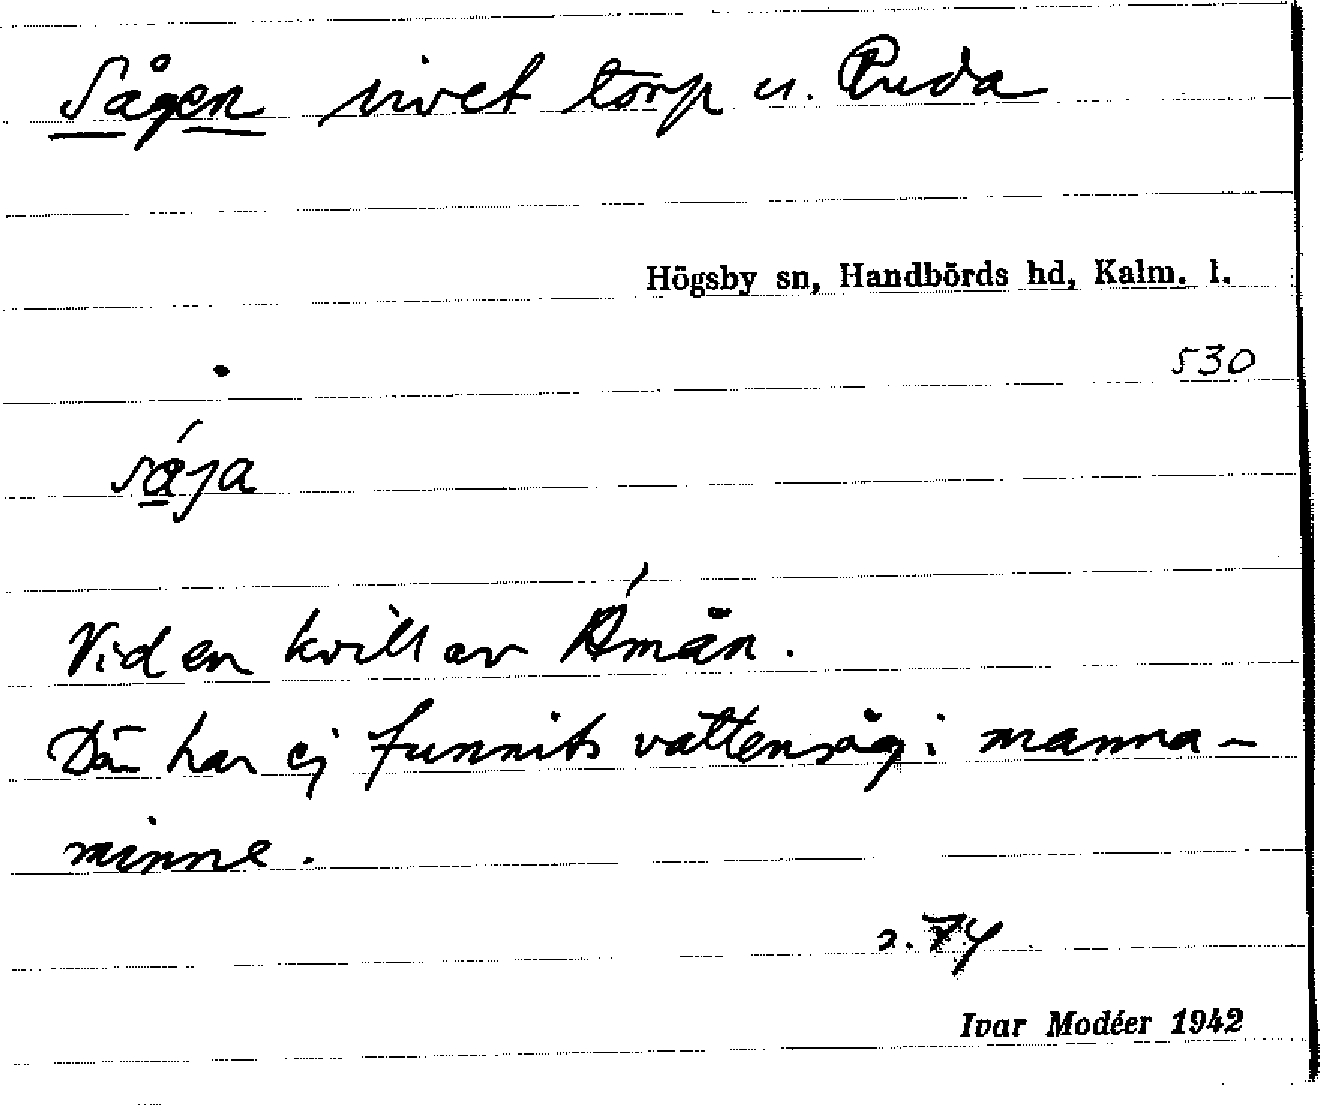 Sågen rivet torp u. Ruda
Högsby sn, Handbörds hd, Kalm. l.
530
såja
Vid en kvill av Åmån.
Där har ej funnits vattensåg i manna-
minne.
s. 74
Ivar Modéer 1942